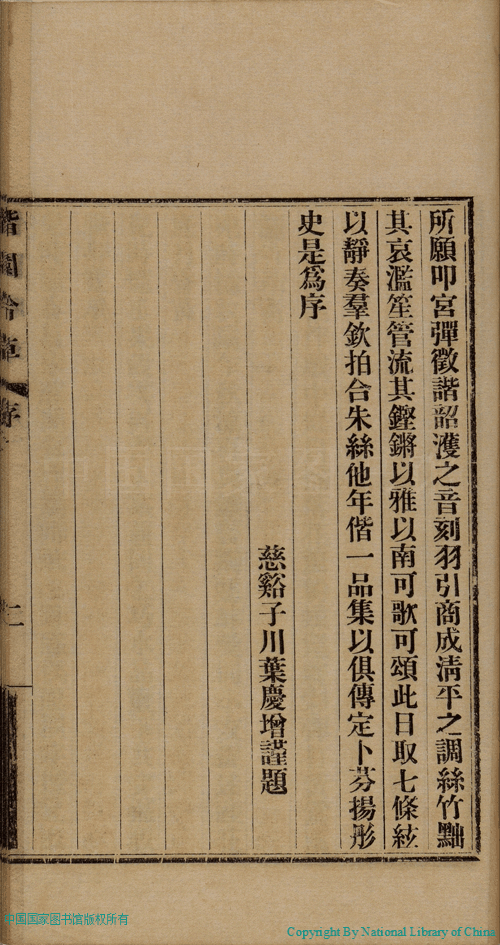 所願叩宮彈徵諧韶濩之音刻羽引商成清平之調絲竹黜
其哀濫笙管流其鏗鏘以雅以南可歌可頌此日取七條絃
以靜奏羣欽拍合朱絲他年偕一品集以俱傳定卜芬揚彤
史是爲序
慈谿子川葉慶增謹題
序
二
中国国家图书馆版权所有
Copyright By National Library of China